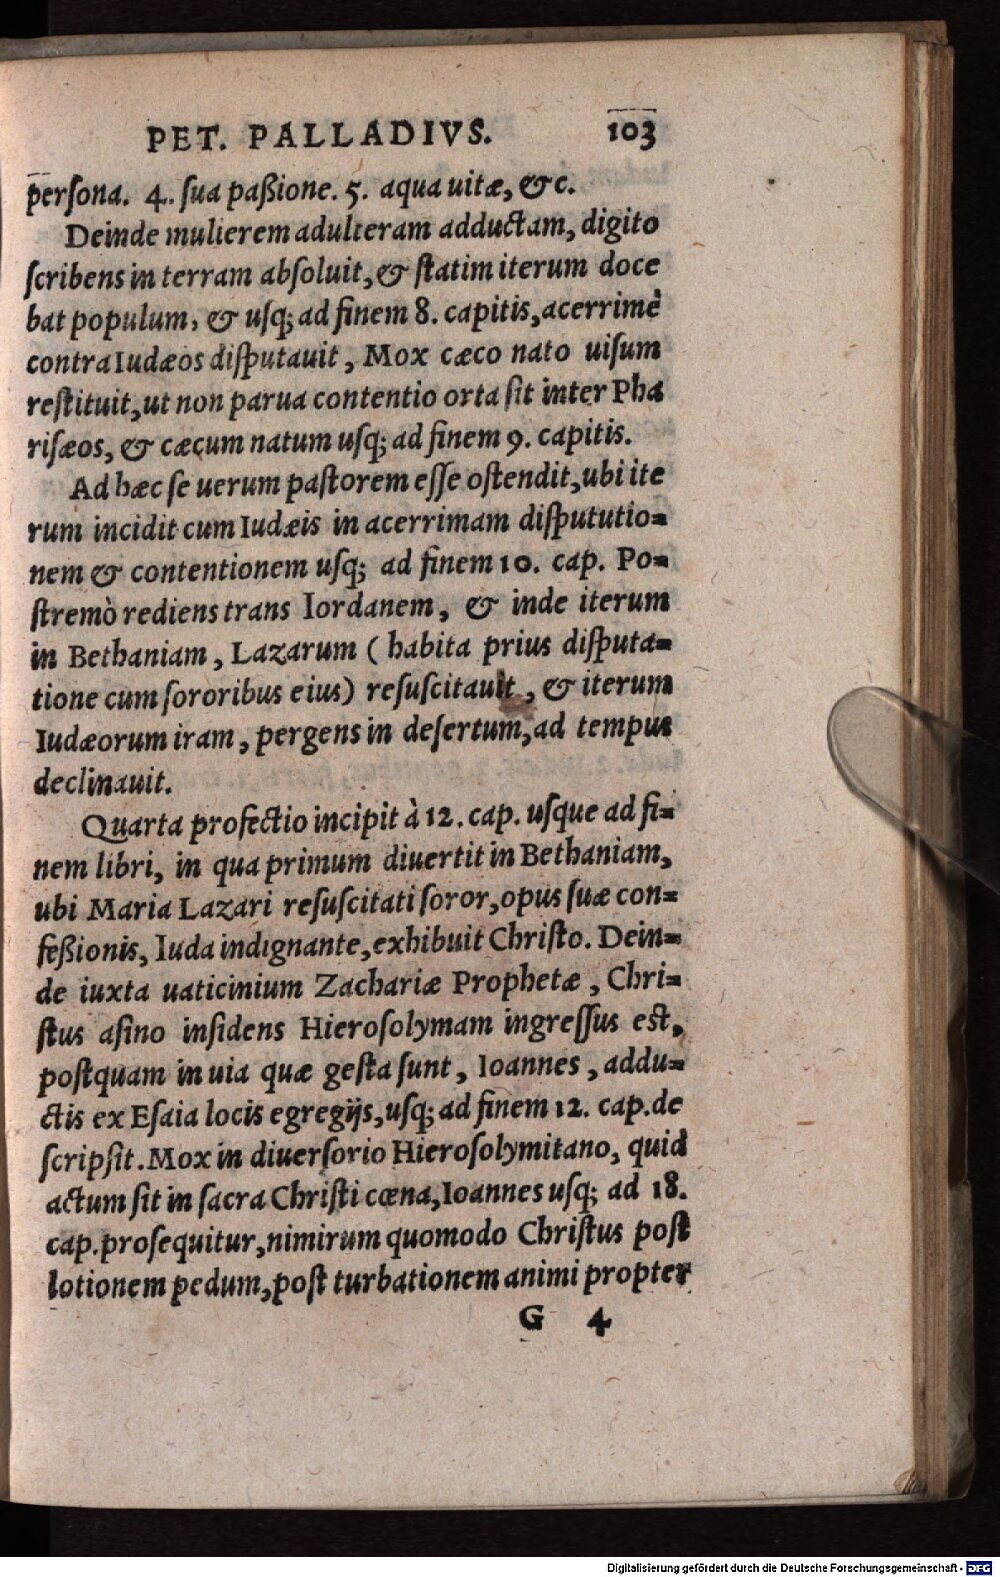 PET. PALLADIVS. 103
persona. 4. sua paßione. 5. aqua uitæ, &c.
Deinde mulierem adulteram adductam, digito
scribens in terram absoluit, & statim iterum doce
bat populum, & usq; ad finem 8. capitis, acerrimè
contra Iudæos disputauit, Mox cæco nato uisum
restituit, ut non parua contentio orta sit inter Pha
risæos, & cæcum natum usq; ad finem 9. capitis.
Ad hæc se uerum pastorem esse ostendit, ubi ite
rum incidit cum Iudæis in acerrimam dispututio=
nem & contentionem usq; ad finem 10. cap. Po=
stremò rediens trans Iordanem, & inde iterum
in Bethaniam, Lazarum ( habita prius disputa=
tione cum sororibus eius) resuscitauit, & iterum
Iudæorum iram, pergens in desertum, ad tempus
declinauit.
Quarta profectio incipit à 12. cap. usque ad fi=
nem libri, in qua primum diuertit in Bethaniam,
ubi Maria Lazari resuscitati soror, opus suæ con=
feßionis, Iuda indignante, exhibuit Christo. Dein=
de iuxta uaticinium Zachariæ Prophetæ, Chri=
stus asino insidens Hierosolymam ingressus est,
postquam in uia quæ gesta sunt, Ioannes, addu=
ctis ex Esaia locis egregijs, usq; ad finem 12. cap. de
scripsit. Mox in diuersorio Hierosolymitano, quid
actum sit in sacra Christi cœna, Ioannes usq; ad 18.
cap. prosequitur, nimirum quomodo Christus post
lotionem pedum, post turbationem animi propter
G 4
Digitalisierung gefördert durch die Deutsche Forschungsgemeinschaft - DFG